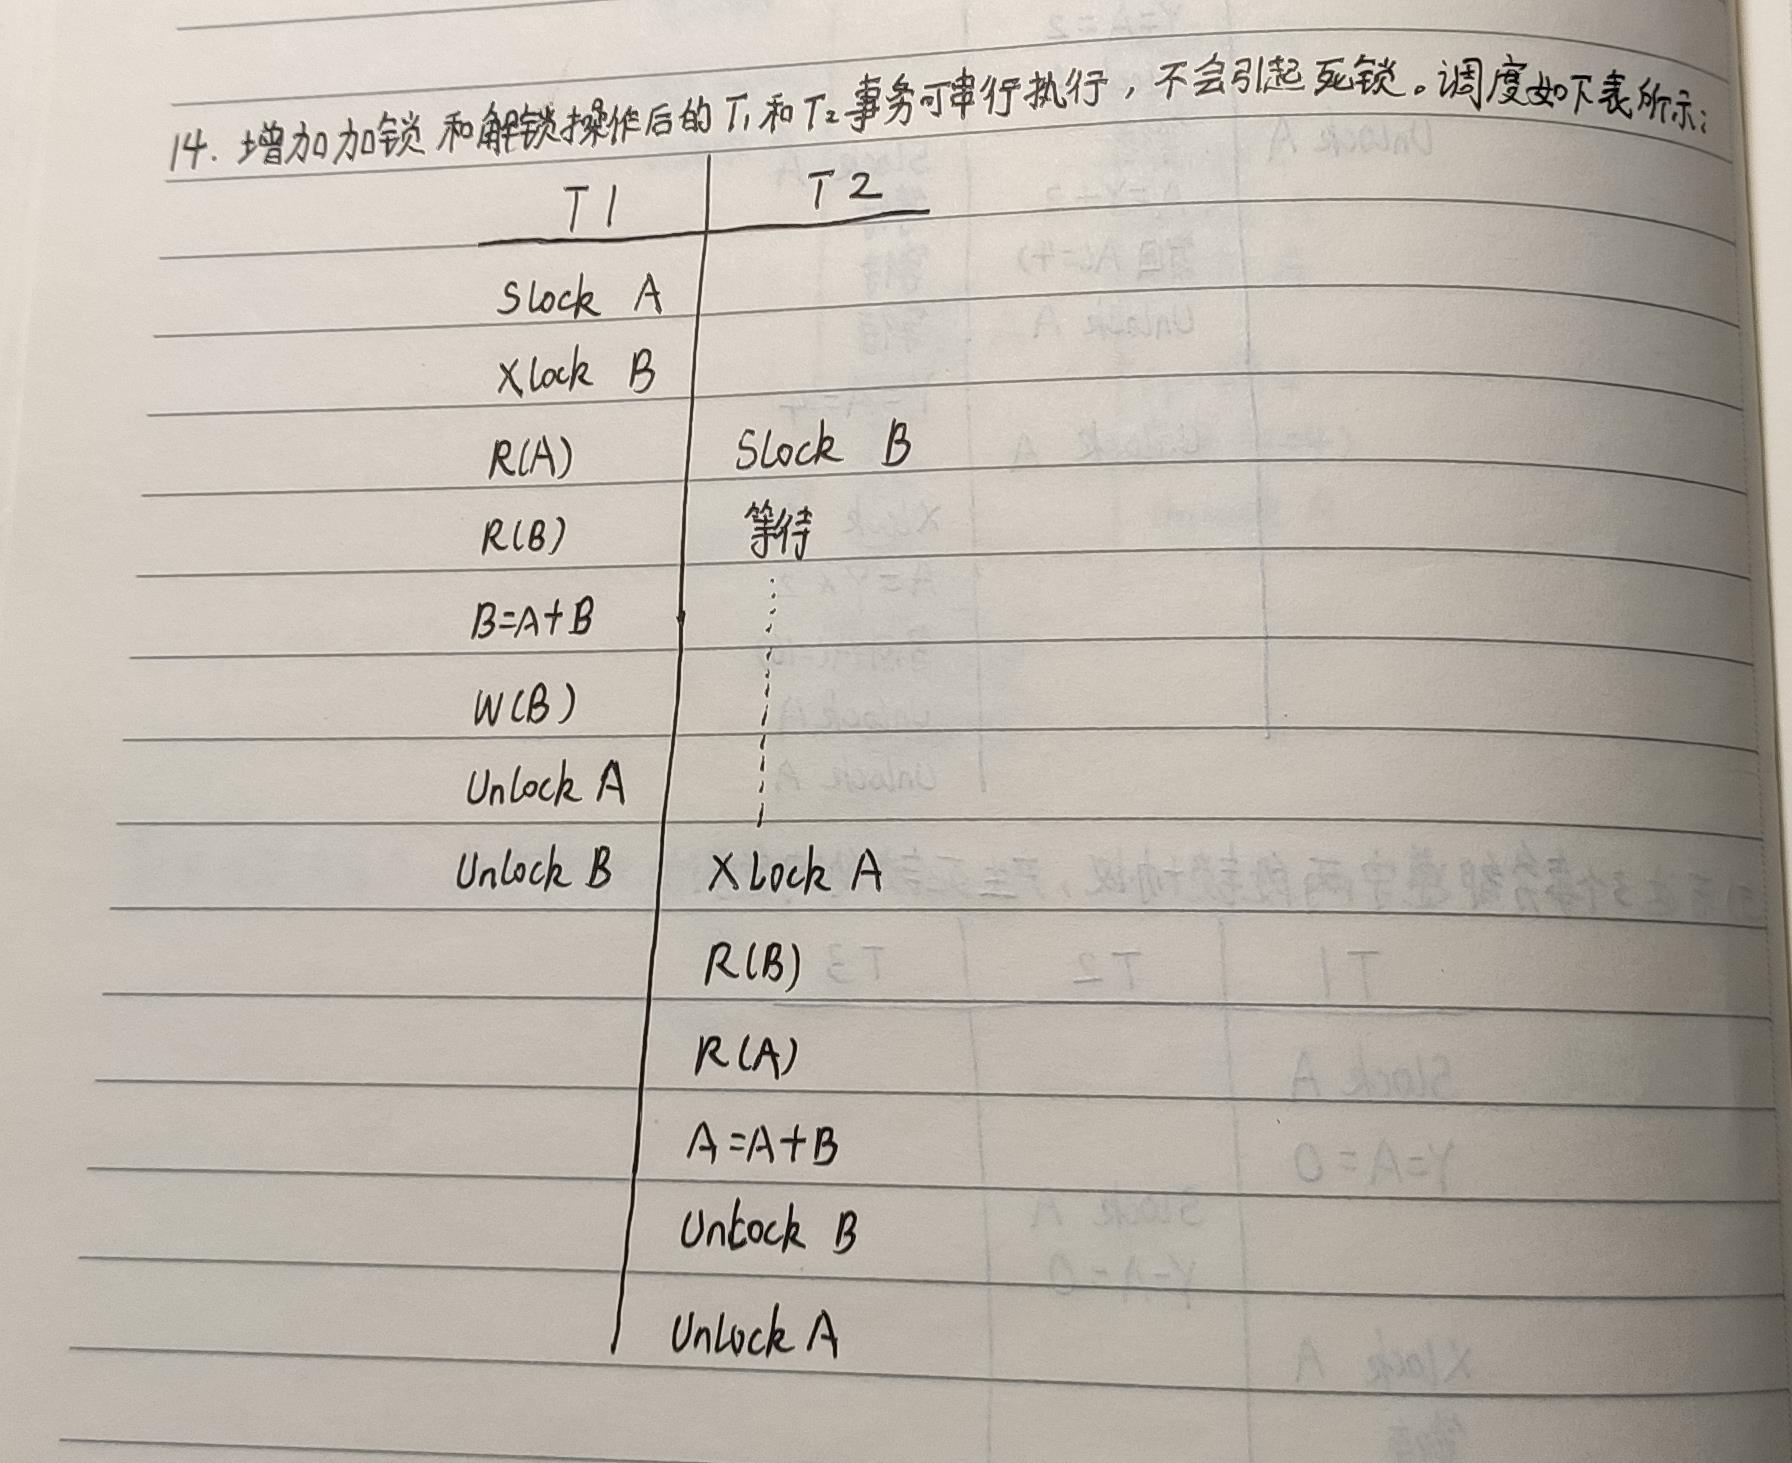 14. 增加加锁和解锁操作后的T₁和T₂事务可串行执行，不会引起死锁。调度如下表所示：
T1 T2
Slock A
Xlock B
R(A) Slock B
R(B) 等待
B=A+B
W(B)
Unlock A
Unlock B Xlock A
R(B)
R(A)
A=A+B
Unlock B
Unlock A